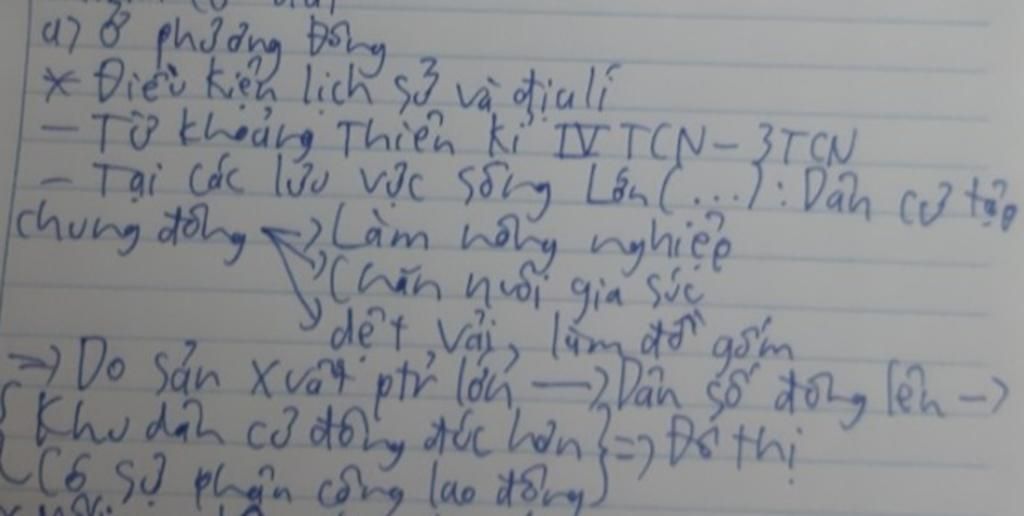 a) Ở phương Đông
* Điều kiện lịch sử và địa lí
- Từ khoảng Thiên kỉ IV TCN - 3TCN
- Tại các lưu vực sông Lớn (...): Dân cư tập
chung đông → Làm nông nghiệp
→ Chăn nuôi gia súc
→ dệt vải, làm đồ gốm
=> Do sản xuất ptr lớn → Dân số đông lên →
{ Khu dân cư đông đúc hơn } => Đô thị
{ Có sự phân công lao động }